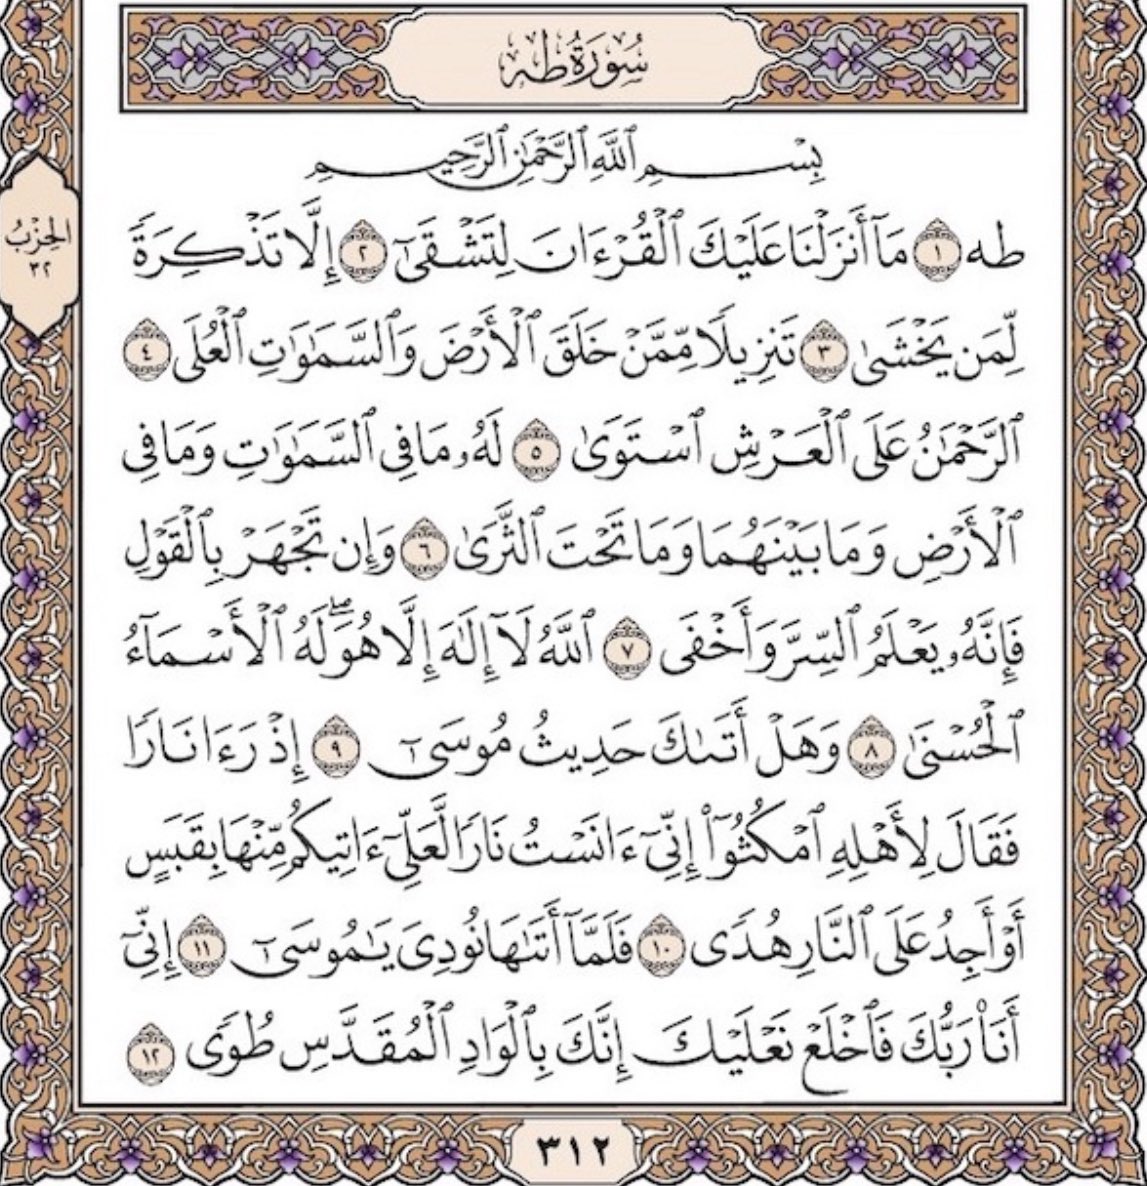 سُورَةُ طه
بِسْمِ ٱللَّهِ ٱلرَّحْمَٰنِ ٱلرَّحِيمِ
طه ١ مَآ أَنزَلْنَا عَلَيْكَ ٱلْقُرْءَانَ لِتَشْقَىٰٓ ٢ إِلَّا تَذْكِرَةً
لِّمَن يَخْشَىٰ ٣ تَنزِيلًا مِّمَّنْ خَلَقَ ٱلْأَرْضَ وَٱلسَّمَٰوَٰتِ ٱلْعُلَى ٤
ٱلرَّحْمَٰنُ عَلَى ٱلْعَرْشِ ٱسْتَوَىٰ ٥ لَهُۥ مَا فِى ٱلسَّمَٰوَٰتِ وَمَا فِى
ٱلْأَرْضِ وَمَا بَيْنَهُمَا وَمَا تَحْتَ ٱلثَّرَىٰ ٦ وَإِن تَجْهَرْ بِٱلْقَوْلِ
فَإِنَّهُۥ يَعْلَمُ ٱلسِّرَّ وَأَخْفَى ٧ ٱللَّهُ لَآ إِلَٰهَ إِلَّا هُوَۖ لَهُ ٱلْأَسْمَآءُ
ٱلْحُسْنَىٰ ٨ وَهَلْ أَتَىٰكَ حَدِيثُ مُوسَىٰٓ ٩ إِذْ رَءَا نَارًا
فَقَالَ لِأَهْلِهِ ٱمْكُثُوٓا۟ إِنِّىٓ ءَانَسْتُ نَارًا لَّعَلِّىٓ ءَاتِيكُم مِّنْهَا بِقَبَسٍ
أَوْ أَجِدُ عَلَى ٱلنَّارِ هُدًى ١٠ فَلَمَّآ أَتَىٰهَا نُودِىَ يَٰمُوسَىٰٓ ١١ إِنِّىٓ
أَنَا۠ رَبُّكَ فَٱخْلَعْ نَعْلَيْكَ إِنَّكَ بِٱلْوَادِ ٱلْمُقَدَّسِ طُوًى ١٢
الحِزْبُ
٣٢
٣١٢